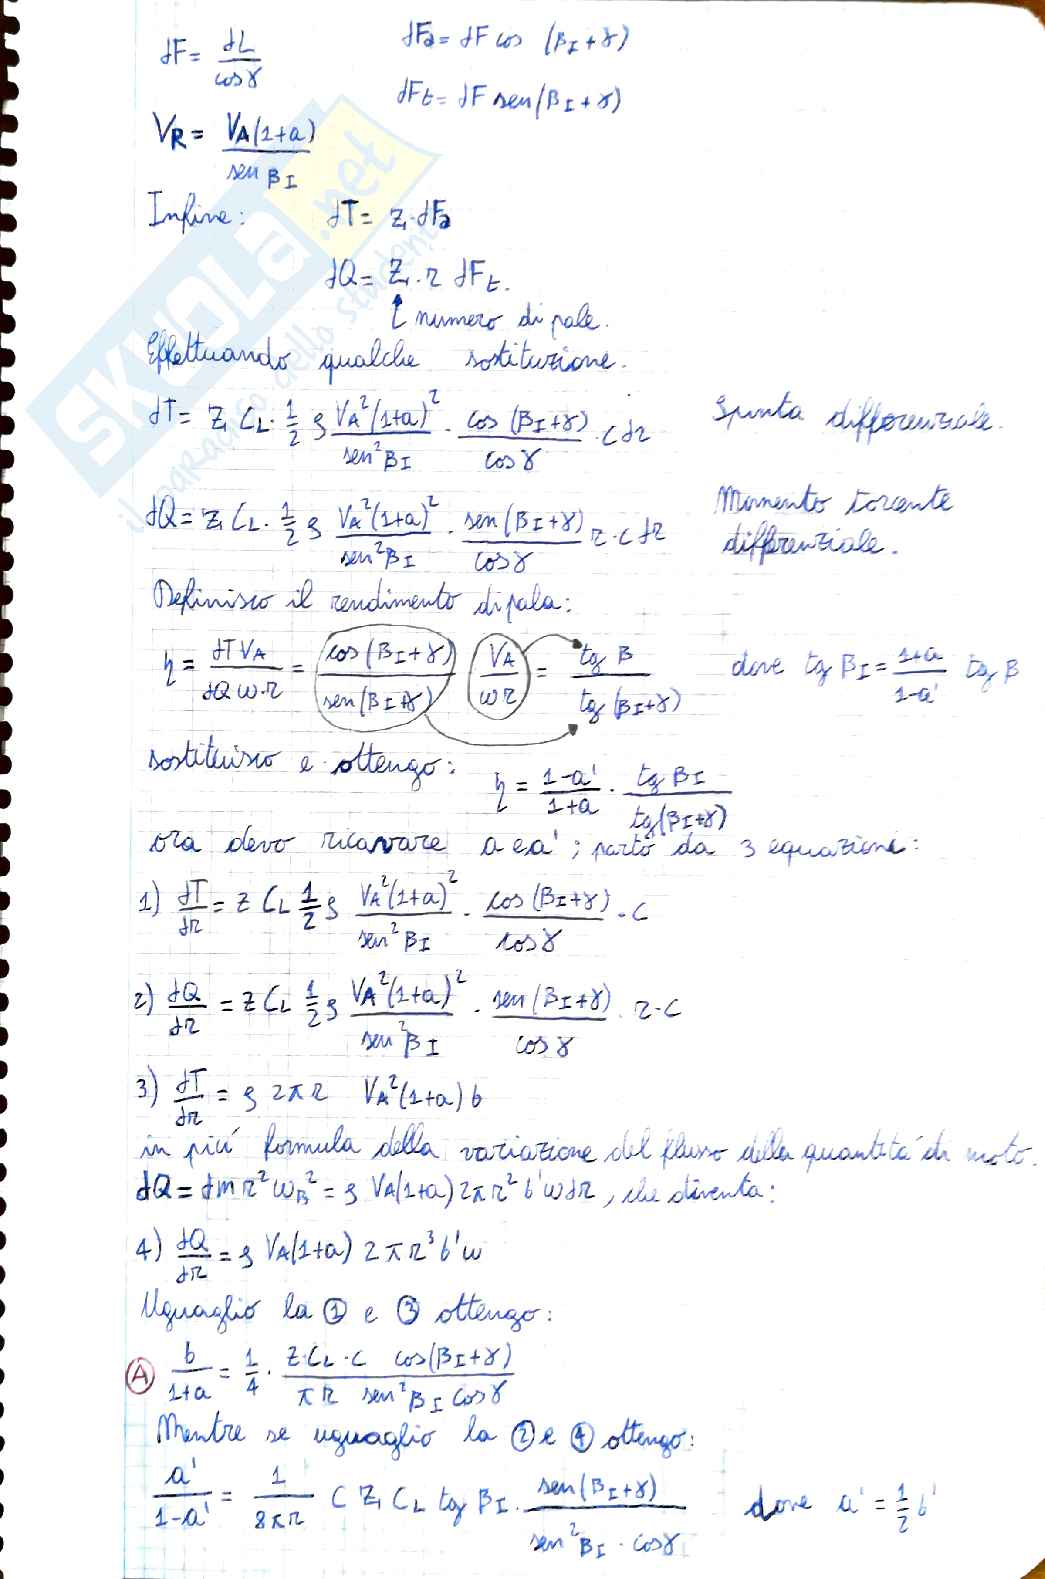 dF = dL/cosγ    dFa = dF cos (βI+γ)
dFt = dF sen(βI+γ)
VR = VA(1+a)/sen βI
Infine:    dT = z·dFa
dQ = z·r dFt.
numero di pale.
Effettuando qualche sostituzione.
dT = z CL·1/2 ρ VA²(1+a)²/sen²βI · cos(βI+γ)/cosγ · c dr    Spinta differenziale.
dQ = z CL·1/2 ρ VA²(1+a)²/sen²βI · sen(βI+γ)/cosγ r·c dr    Momento torcente
differenziale.
Definisco il rendimento di pala:
η = dT VA/dQ ω·r = cos(βI+γ)/sen(βI+γ) VA/ωr = tg β/tg(βI+γ)    dove tg βI = 1+a/1-a' tg β
sostituisco e ottengo:    η = 1-a'/1+a · tg βI/tg(βI+γ)
ora devo ricavare a e a'; parto da 3 equazioni:
1) dT/dr = z CL 1/2 ρ VA²(1+a)²/sen²βI · cos(βI+γ)/cosγ · c
2) dQ/dr = z CL 1/2 ρ VA²(1+a)²/sen²βI · sen(βI+γ)/cosγ · r·c
3) dT/dr = ρ 2πr VA²(1+a) b
in più formula della variazione del flusso della quantità di moto.
dQ = dm r² ωB² = ρ VA(1+a) 2πr² b'ω dr, che diventa:
4) dQ/dr = ρ VA(1+a) 2πr³ b'ω
Uguaglio la ① e ③ ottengo:
Ⓐ b/1+a = 1/4 · z·CL·c cos(βI+γ)/πr sen²βI cosγ
Mentre se uguaglio la ② e ④ ottengo:
a'/1-a' = 1/8πr c z CL tg βI · sen(βI+γ)/sen²βI · cosγ    dove a' = 1/2 b'
SKUOLA.net
il paradiso dello studente